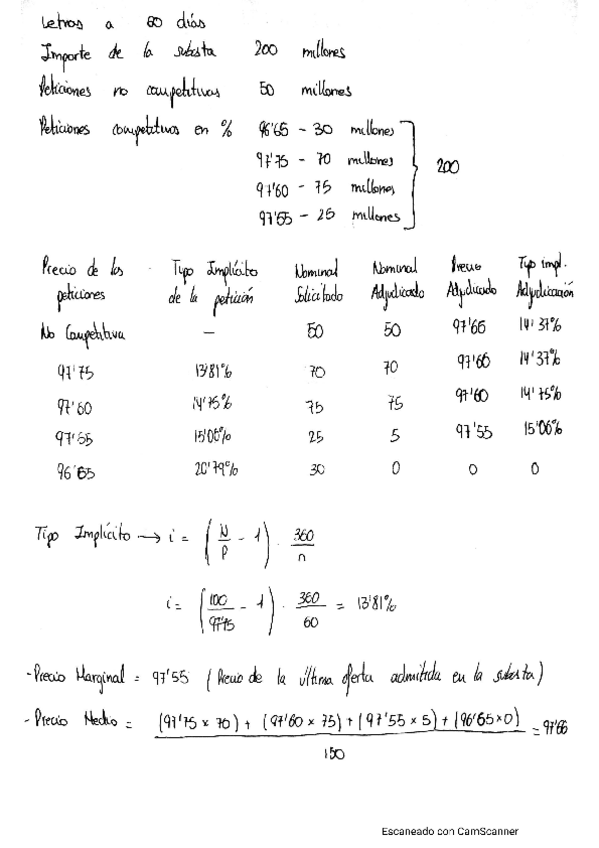 Letras a 60 días
Importe de la subasta 200 millones
Peticiones no competitivas 50 millones
Peticiones competitivas en % 96'65 - 30 millones
97'75 - 70 millones
97'60 - 75 millones
97'55 - 25 millones
200
Precio de las peticiones Tipo Implícito de la petición Nominal Solicitado Nominal Adjudicado Precio Adjudicado Tipo impl. Adjudicación
No Competitiva — 50 50 97'66 14'37%
97'75 13'81% 70 70 97'66 14'37%
97'60 14'75% 75 75 97'60 14'75%
97'55 15'06% 25 5 97'55 15'06%
96'65 20'79% 30 0 0 0
Tipo Implícito → i = (N/P - 1) · 360/n
i = (100/97'75 - 1) · 360/60 = 13'81%
- Precio Marginal = 97'55 (Precio de la última oferta admitida en la subasta)
- Precio Medio = (97'75 x 70) + (97'60 x 75) + (97'55 x 5) + (96'65 x 0) / 150 = 97'66
Escaneado con CamScanner